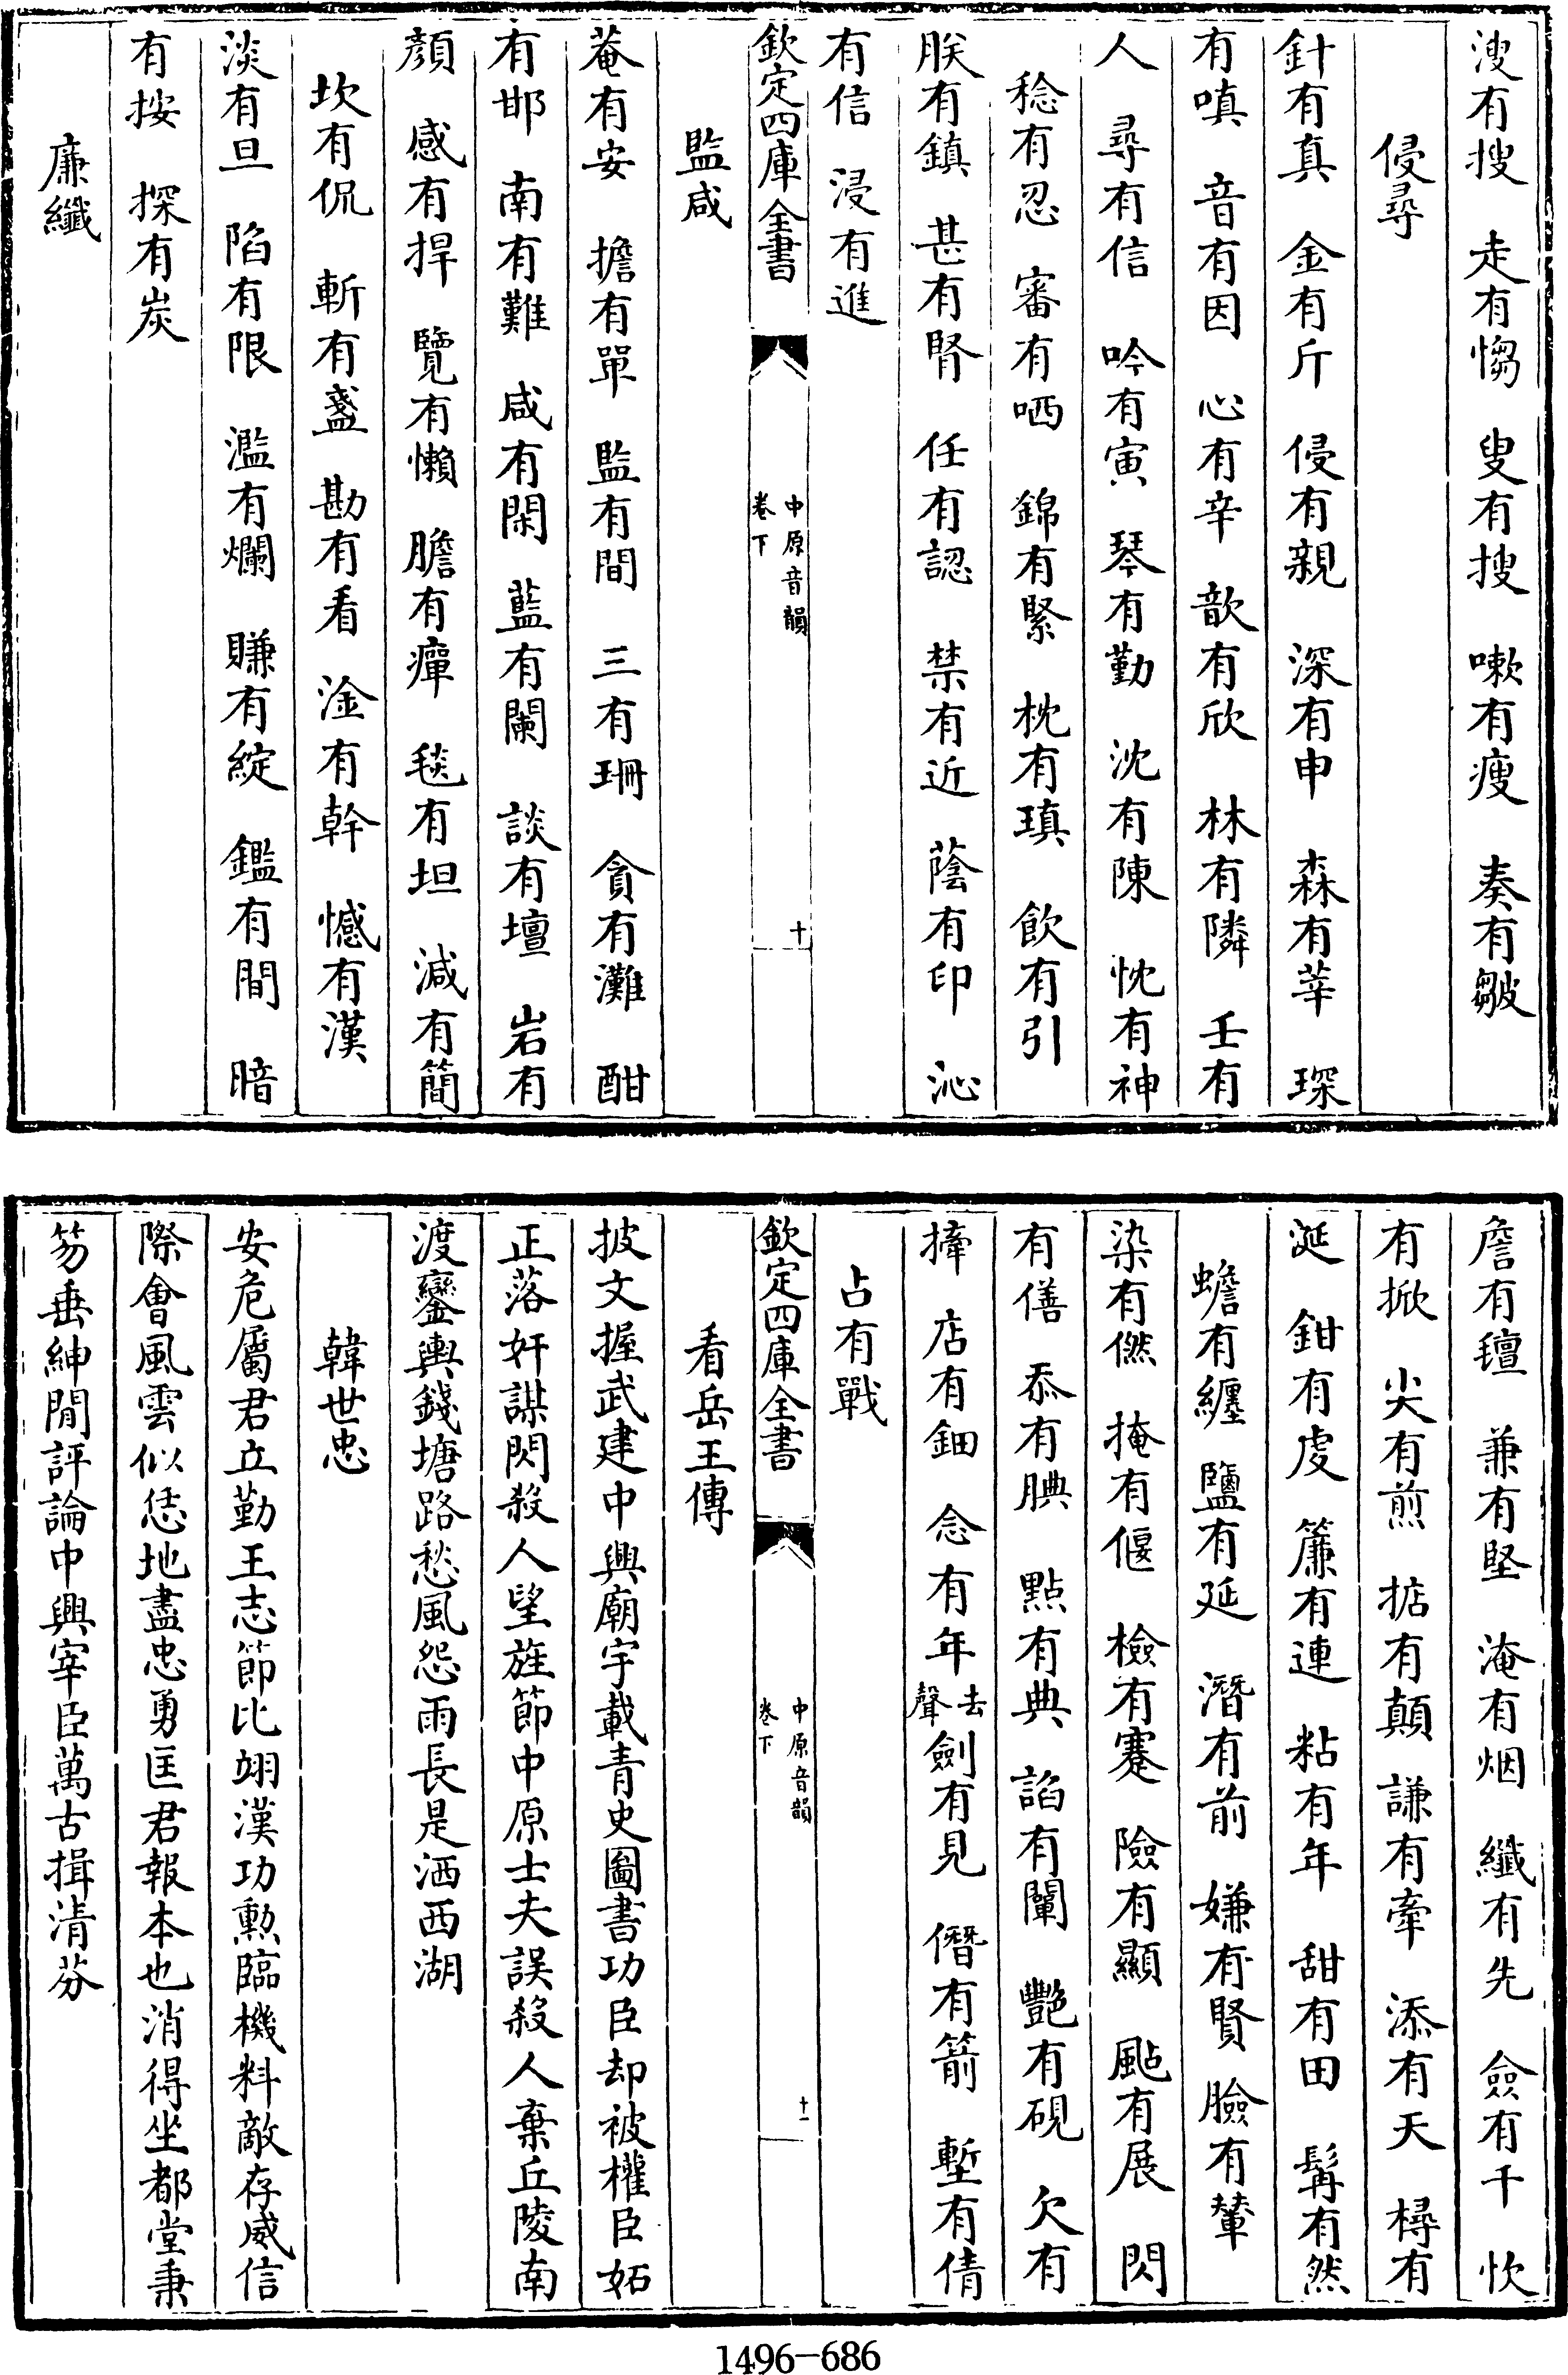 溲有搜　走有㥮　叟有搜　嗽有瘦　奏有皺
侵尋
針有真　金有斤　侵有親　深有申　森有莘　琛
有嗔　音有因　心有辛　歆有欣　林有隣　壬有
人　尋有信　吟有寅　琴有勤　沈有陳　忱有神
稔有忍　審有哂　錦有緊　枕有瑱　飲有引
朕有鎮　甚有腎　任有認　禁有近　蔭有印　沁
有信　浸有進
欽定四庫全書
中原音韻
卷下
十
監咸
菴有安　擔有單　監有間　三有珊　貪有灘　酣
有邯　南有難　咸有閑　藍有闌　談有壇　岩有
顏　感有捍　覽有懶　膽有癉　毯有坦　減有簡
坎有侃　斬有盞　勘有看　淦有幹　憾有漢
淡有旦　陷有限　濫有爛　賺有綻　鑑有間　暗
有按　探有炭
廉纖
詹有氊　兼有堅　淹有烟　纖有先　僉有千　忺
有掀　尖有煎　掂有顛　謙有牽　添有天　橝有
涎　鉗有虔　簾有連　粘有年　甜有田　髯有然
蟾有纏　鹽有延　潛有前　嫌有賢　臉有輦
染有燃　掩有偃　檢有蹇　險有顯　颭有展　閃
有僐　忝有腆　點有典　諂有闡　艷有硯　欠有
㨔　店有鈿　念有年去聲　劍有見　僭有箭　塹有倩
占有戰
欽定四庫全書
中原音韻
卷下
十一
看岳王傳
披文握武建中興廟宇載青史圖書功臣却被權臣妬
正落奸謀閃殺人望旌節中原士夫誤殺人棄丘陵南
渡鑾輿錢塘路愁風怨雨長是洒西湖
韓世忠
安危屬君立勤王志節比翊漢功勲臨機料敵存威信
際會風雲似恁地盡忠勇匡君報本也消得坐都堂秉
笏垂紳閒評論中興宰臣萬古揖清芬
1496—686